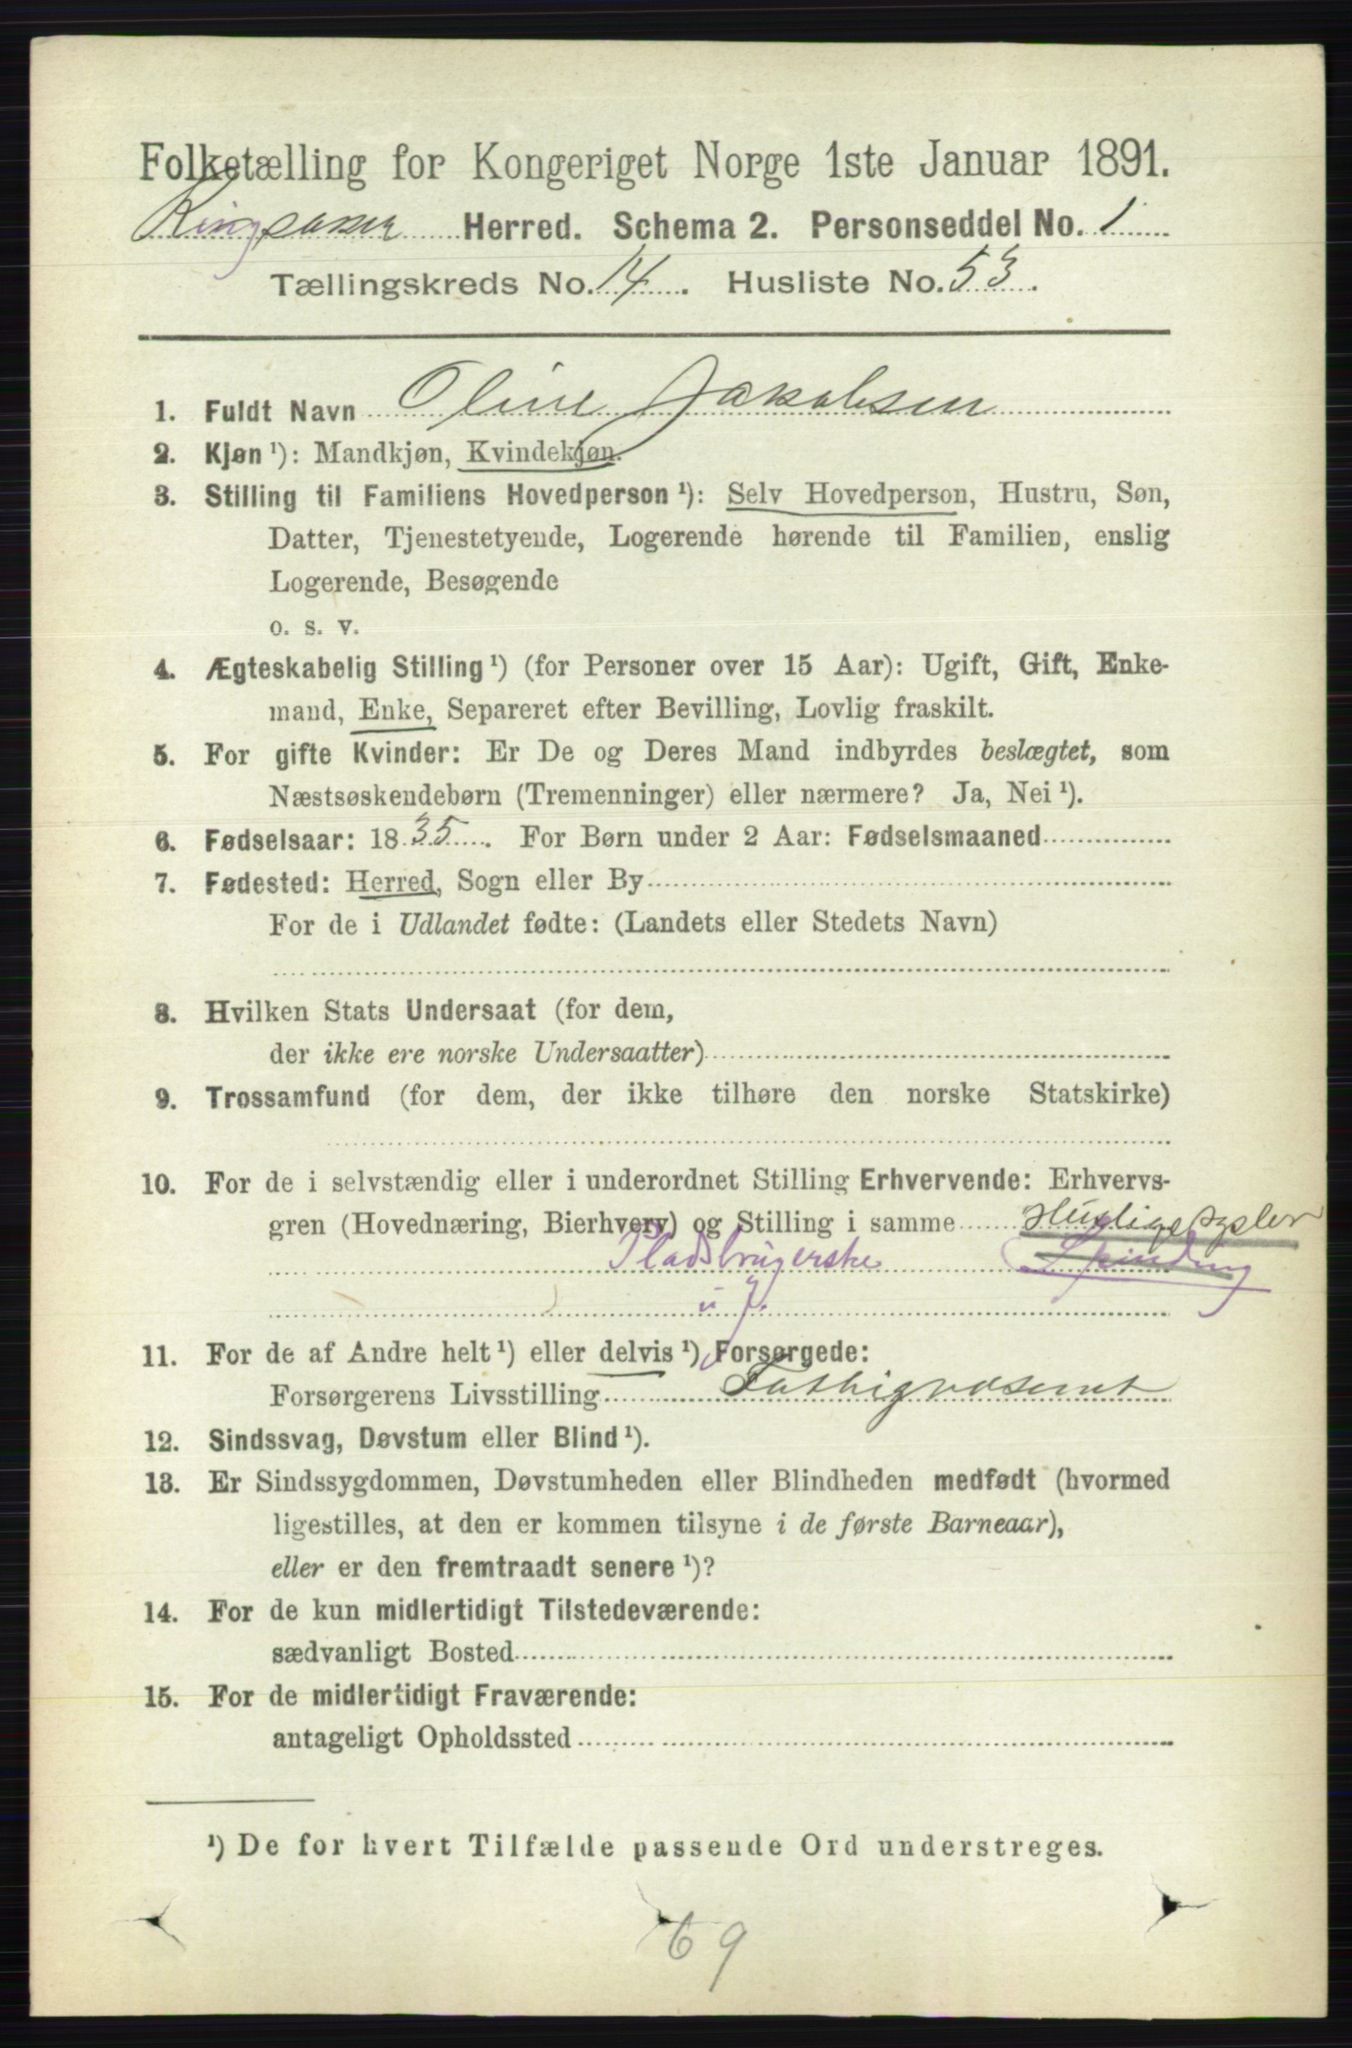 Folketælling for Kongeriget Norge 1ste Januar 1891.
Ringsaker Herred. Schema 2. Personseddel No. 1
Tællingskreds No. 14. Husliste No. 53.
1. Fuldt Navn Oline Jakobsen
2. Kjøn ¹): Mandkjøn, Kvindekjøn.
3. Stilling til Familiens Hovedperson ¹): Selv Hovedperson, Hustru, Søn,
Datter, Tjenestetyende, Logerende hørende til Familien, enslig
Logerende, Besøgende
o. s. v.
4. Ægteskabelig Stilling ¹) (for Personer over 15 Aar): Ugift, Gift, Enke-
mand, Enke, Separeret efter Bevilling, Lovlig fraskilt.
5. For gifte Kvinder: Er De og Deres Mand indbyrdes beslægtet, som
Næstsøskendebørn (Tremenninger) eller nærmere? Ja, Nei ¹).
6. Fødselsaar: 1835. For Børn under 2 Aar: Fødselsmaaned
7. Fødested: Herred, Sogn eller By
For de i Udlandet fødte: (Landets eller Stedets Navn)
8. Hvilken Stats Undersaat (for dem,
der ikke ere norske Undersaatter)
9. Trossamfund (for dem, der ikke tilhøre den norske Statskirke)
10. For de i selvstændig eller i underordnet Stilling Erhvervende: Erhvervs-
gren (Hovednæring, Bierhverv) og Stilling i samme Huslige Sysler
Pladsbrugerske Spinding
u J.
11. For de af Andre helt ¹) eller delvis ¹) Forsørgede:
Forsørgerens Livsstilling Fattigvæsenet
12. Sindssvag, Døvstum eller Blind ¹).
13. Er Sindssygdommen, Døvstumheden eller Blindheden medfødt (hvormed
ligestilles, at den er kommen tilsyne i de første Barneaar),
eller er den fremtraadt senere ¹)?
14. For de kun midlertidigt Tilstedeværende:
sædvanligt Bosted
15. For de midlertidigt Fraværende:
antageligt Opholdssted
¹) De for hvert Tilfælde passende Ord understreges.
69